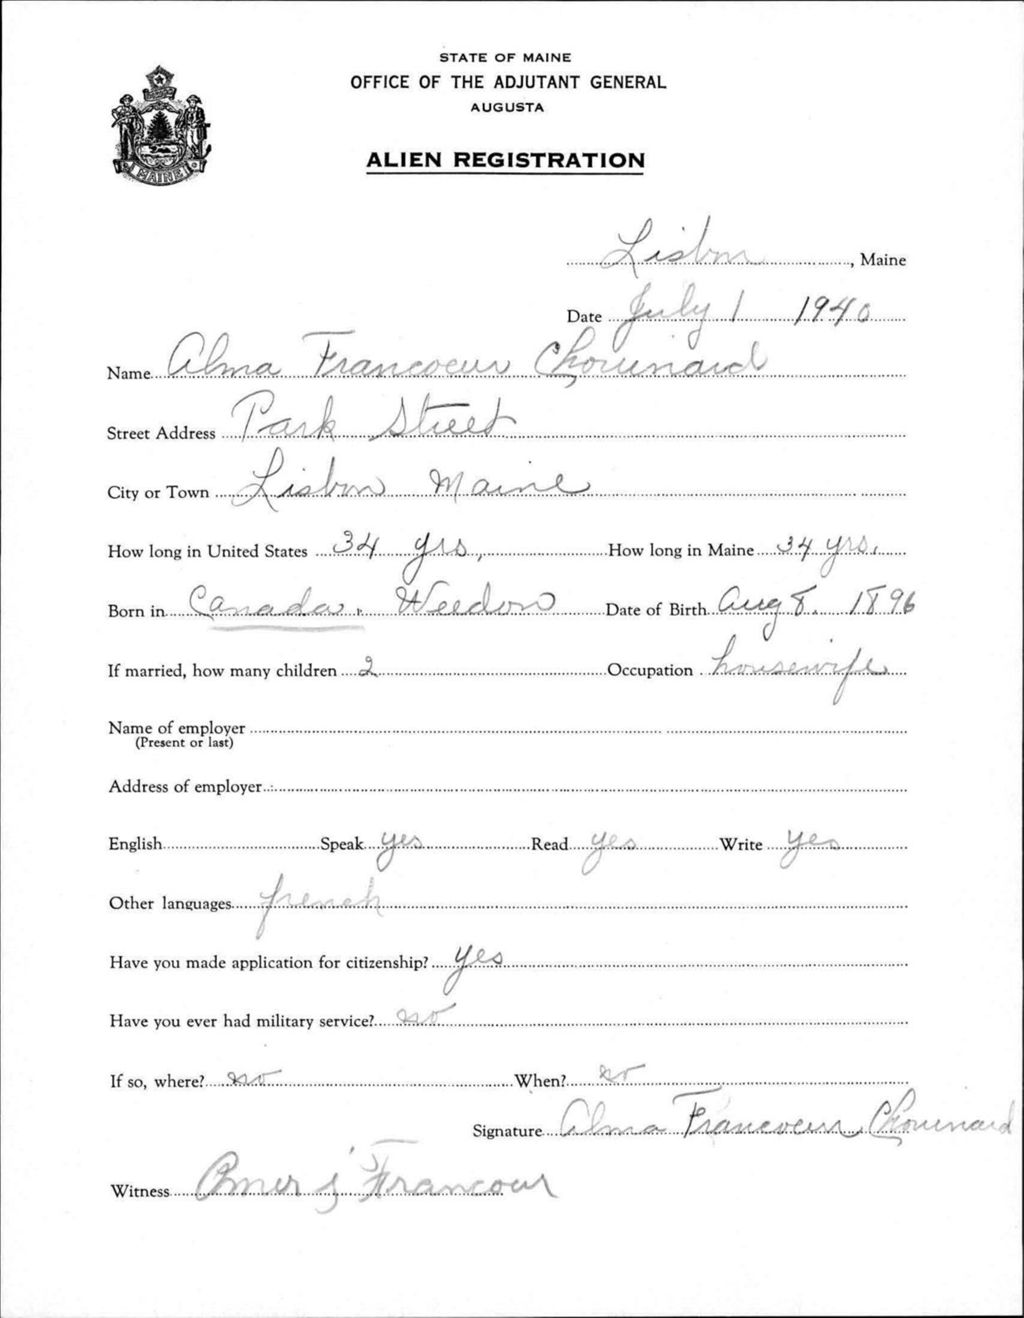 STATE OF MAINE
OFFICE OF THE ADJUTANT GENERAL
AUGUSTA
MAINE
ALIEN REGISTRATION
Lisbon, Maine
Date July 1 1940
Name Alma Francoeur Chouinard
Street Address Park Street
City or Town Lisbon Maine
How long in United States 34 yrs, How long in Maine 34 yrs,
Born in Canada, Weedon Date of Birth Aug 8. 1896
If married, how many children 2 Occupation housewife
Name of employer
(Present or last)
Address of employer
English Speak yes Read yes Write yes
Other languages french
Have you made application for citizenship? yes
Have you ever had military service? no
If so, where? no When? no
Signature Alma Francoeur Chouinard
Witness Omer J Francour